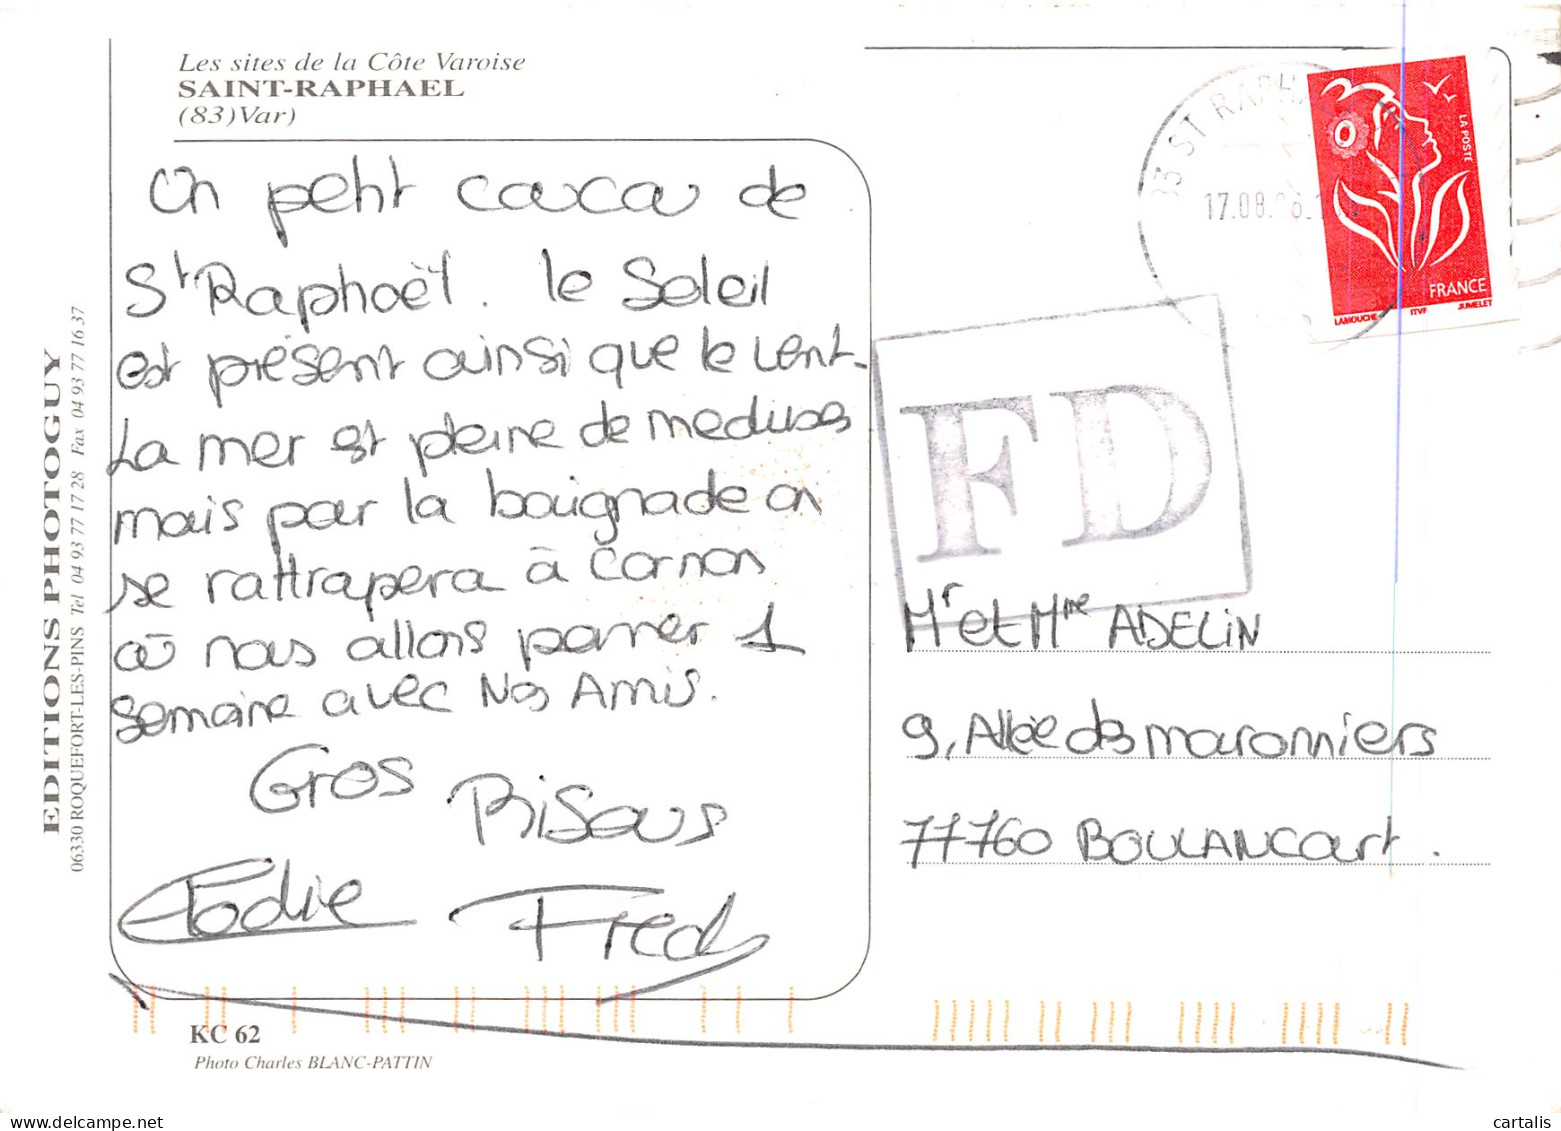 Les sites de la Côte Varoise
SAINT-RAPHAEL
(83)Var)
Un petit caca de
St Raphaët. le Soleil
est présent ainsi que le vent.
La mer est pleine de meduses
mais pour la baignade on
se rattrapera à Carnon
où nous allons passer 1
semaine avec Nos Amis.
Gros Bisous
Elodie Fred
EDITIONS PHOTOGUY
06330 ROQUEFORT-LES-PINS Tel 04 93 77 17 28 Fax 04 93 77 16 37
KC 62
Photo Charles BLANC-PATTIN
83 ST RAPHA
17.08.
LA POSTE
FRANCE
LAMOUCHE ITVF JUMELET
FD
Mr et Mme ADELIN
9, Allée des maronniers
77760 BOULANCOURT.
cartalis